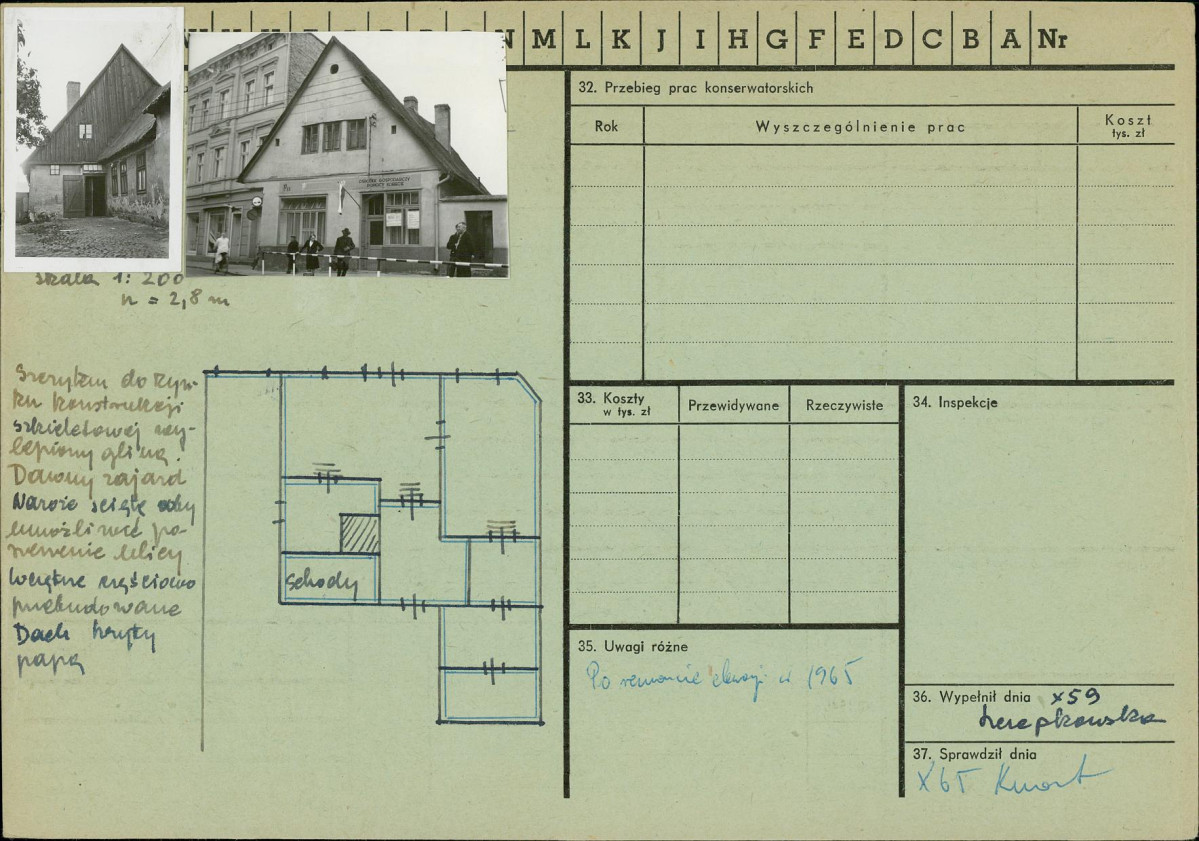 N M L K J I H G F E D C B A Nr
OŚRODEK GOSPODARCZY
skala 1:200
h = 2,8 m
Szczytem do ryn-
ku konstrukcji
szkieletowej wy-
lepiony gliną.
Dawny zajazd
Naroże ścięte aby
umożliwić po-
szerzenie ulicy
Wnętrze częściowo
przebudowane
Dach kryty
papą
schody
32. Przebieg prac konserwatorskich
Rok
Wyszczególnienie prac
Koszt
tys. zł
33. Koszty
w tys. zł
Przewidywane
Rzeczywiste
34. Inspekcje
35. Uwagi różne
Po remoncie elewacji w 1965
36. Wypełnił dnia X 59
37. Sprawdził dnia